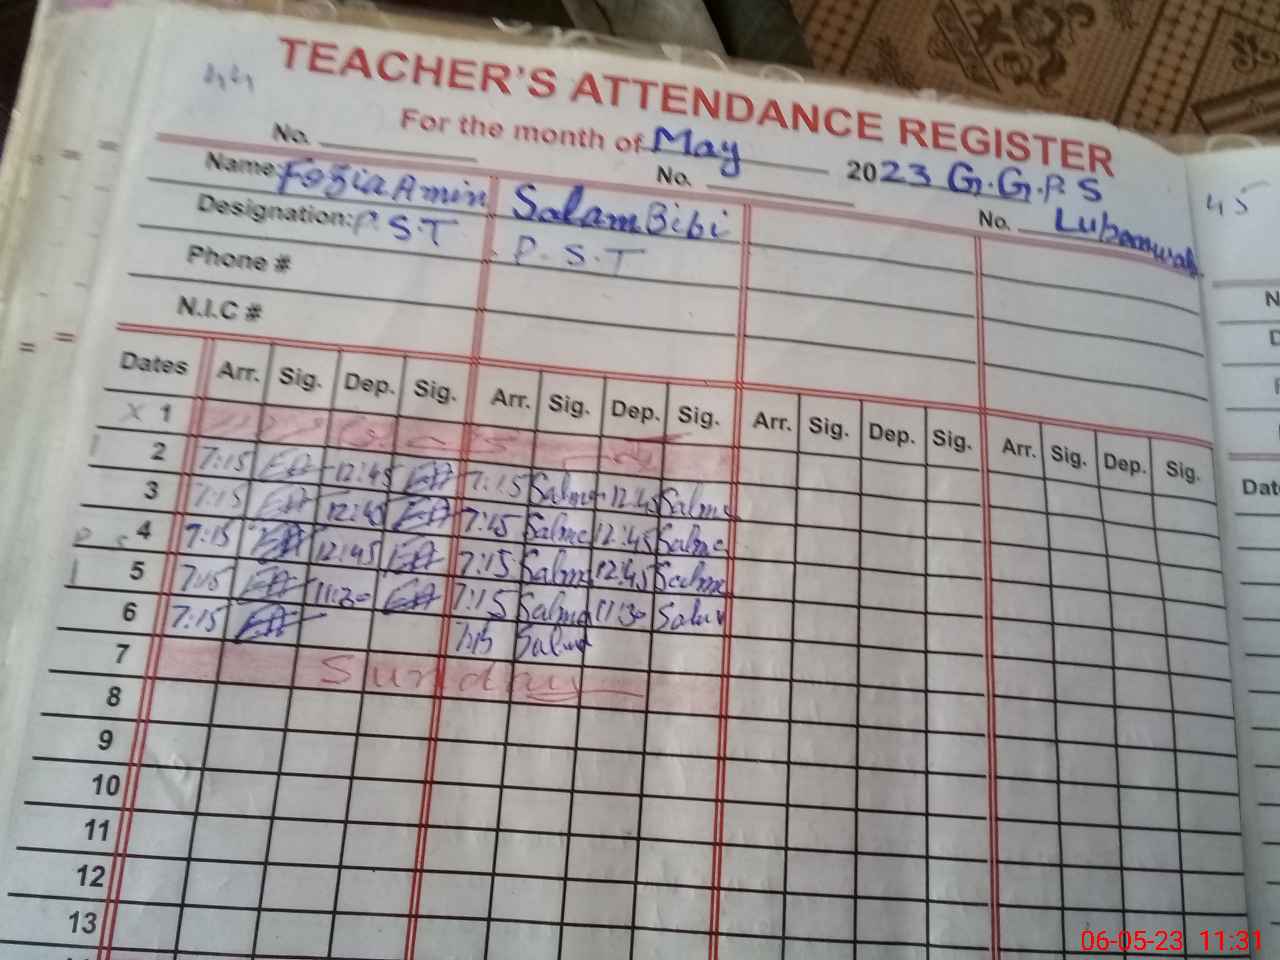 44
TEACHER'S ATTENDANCE REGISTER
For the month of May 2023 G.G.P.S
No. No. No. Lubanwah
45
Name: Fozia Amin Salam Bibi
Designation: P.S.T P.S.T
Phone #
N.I.C #
Dates Arr. Sig. Dep. Sig. Arr. Sig. Dep. Sig. Arr. Sig. Dep. Sig. Arr. Sig. Dep. Sig.
X 1
2 7:15 12:45 7:15 Salma 12:45 Salma
3 7:15 12:45 7:15 Salma 12:45 Salma
4 7:15 12:45 7:15 Salma 12:45 Salma
5 7:15 11:30 7:15 Salma 11:30 Salm
6 7:15 7:15 Salma
7 Sunday
8
9
10
11
12
13
06-05-23 11:31